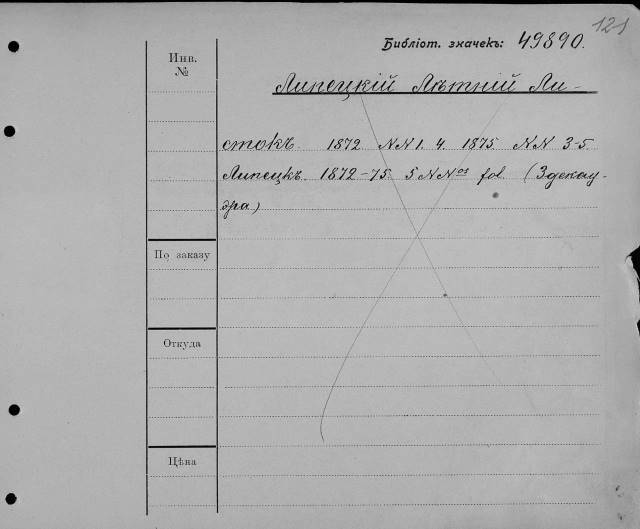 121
Библіот. значекъ: 49890.
Инв.
№
Липецкій Лѣтній Ли-
стокъ. 1872 NN 1. 4. 1875. NN 3-5.
Липецкъ. 1872-75. 5 NNos fol. (Здекау-
эра)
По заказу
Откуда
Цѣна